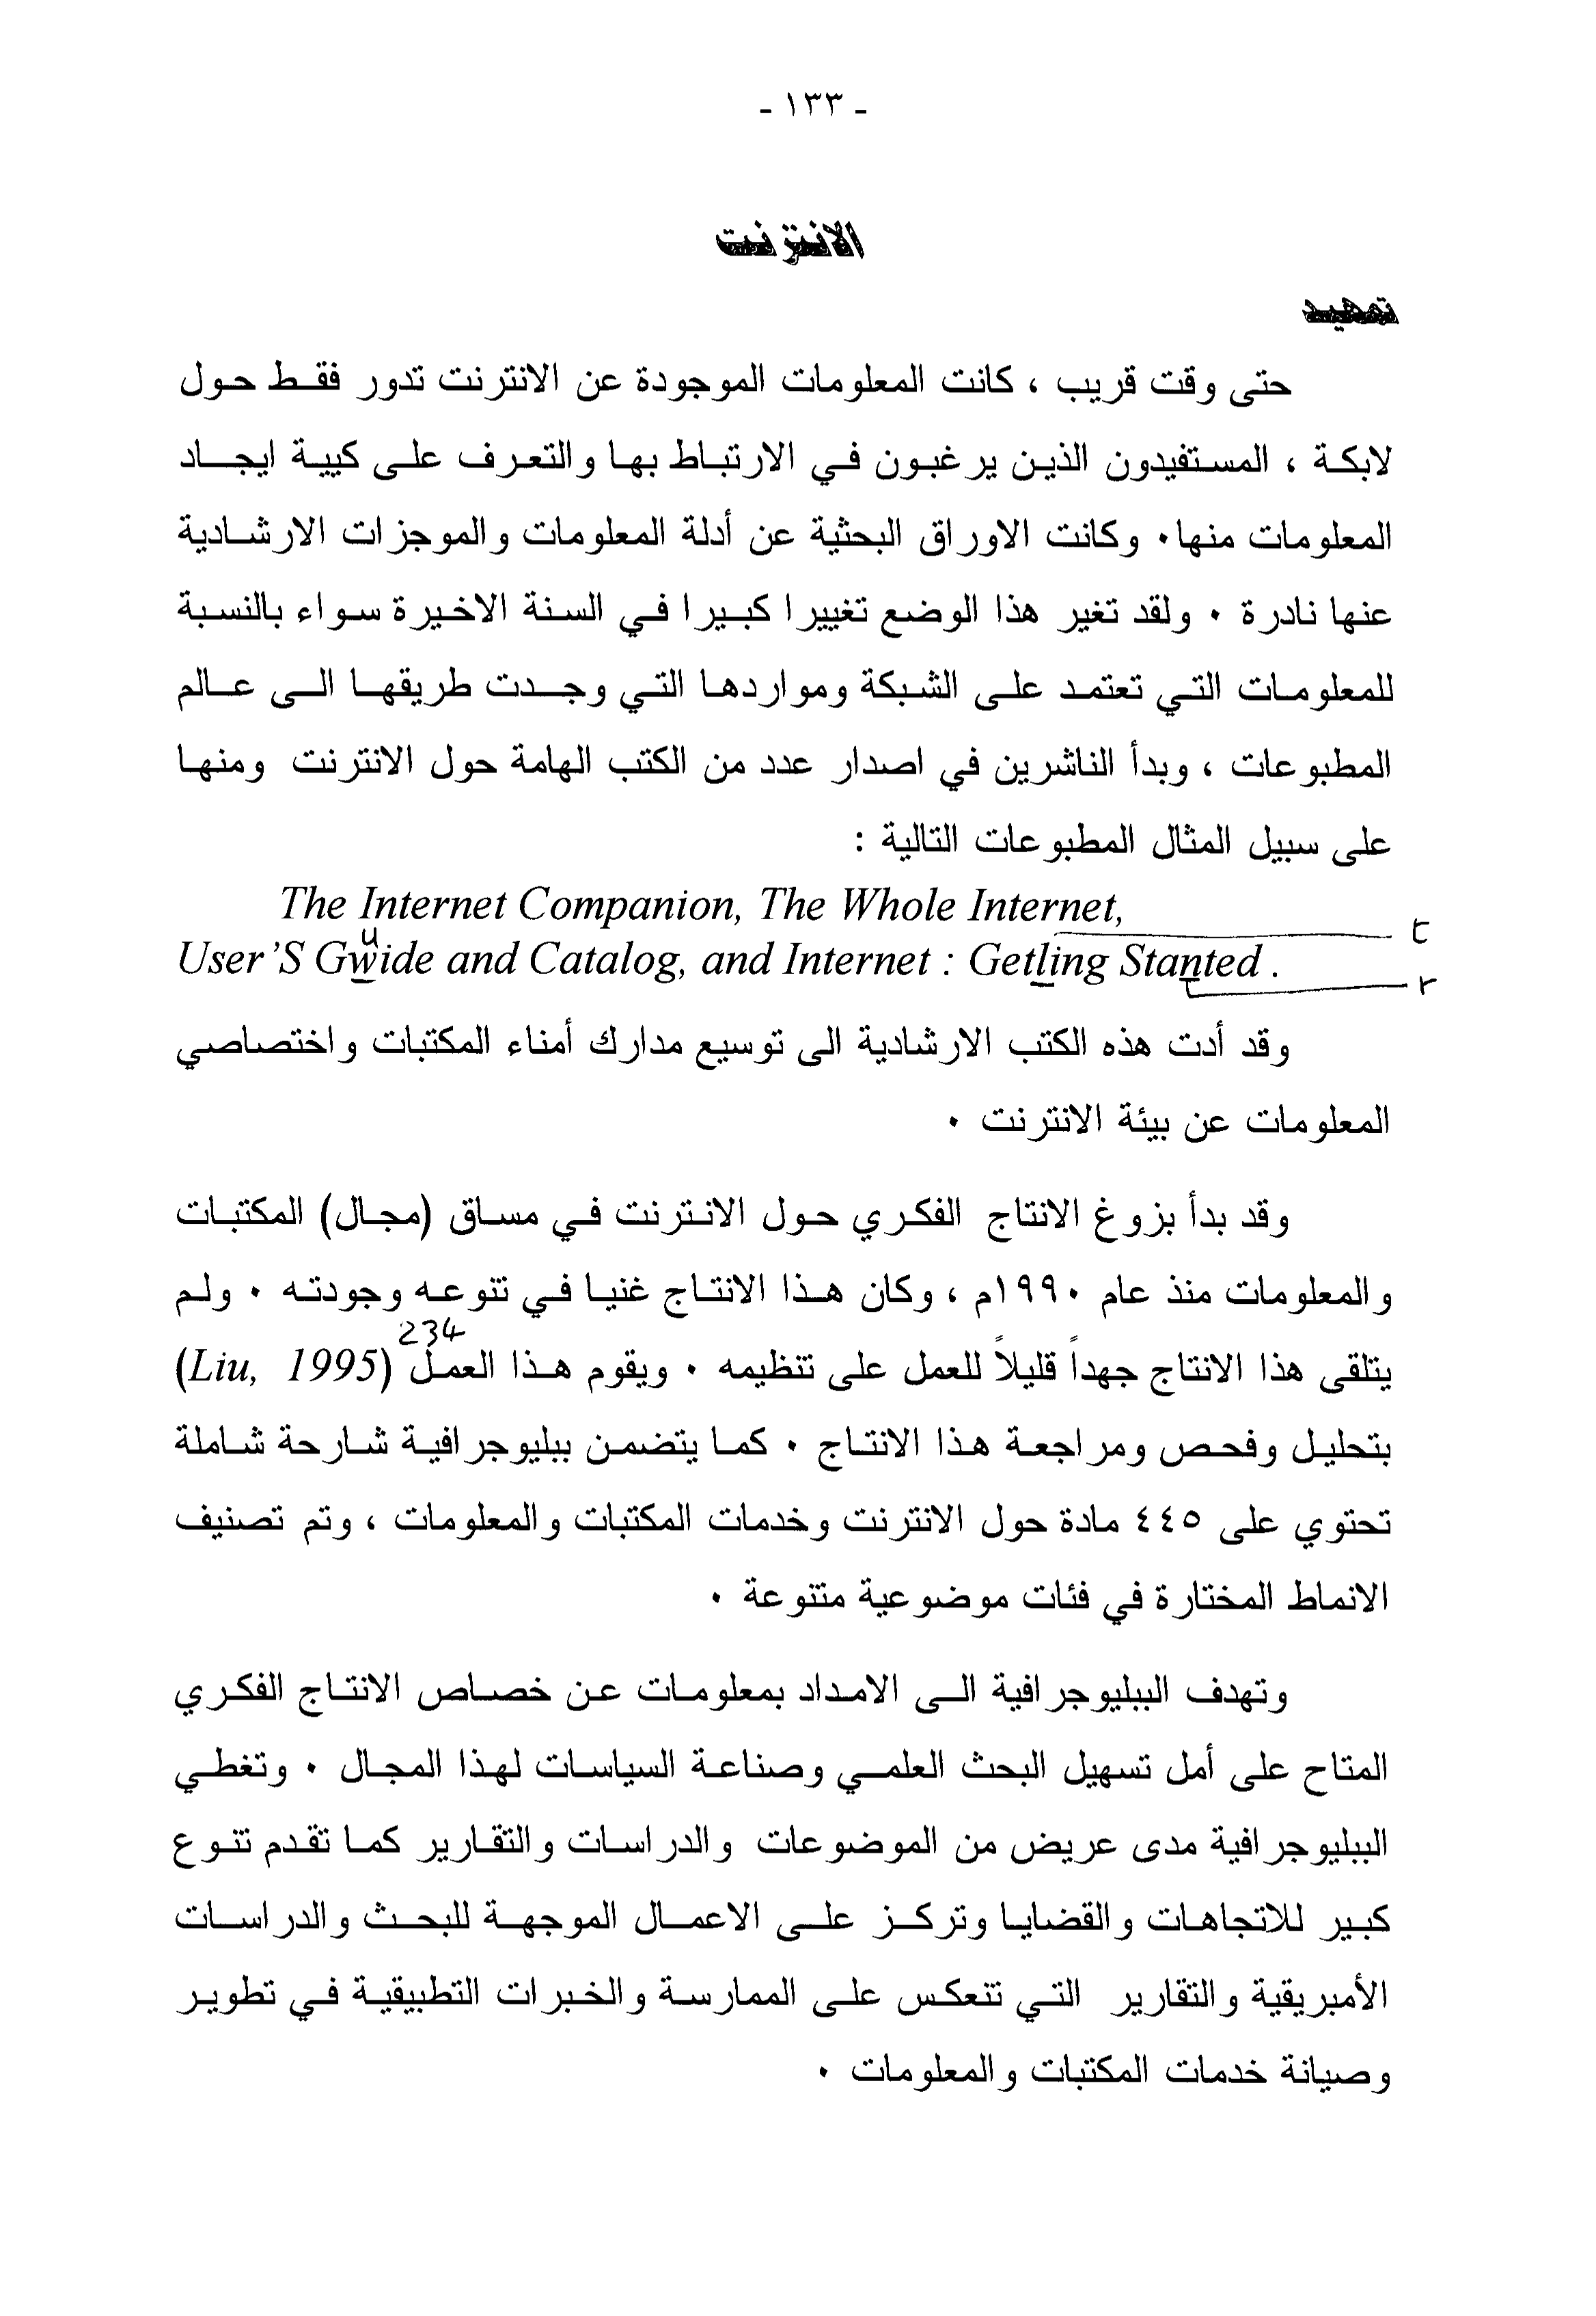 - ١٣٣ -
الانترنت
تمهيد
حتى وقت قريب ، كانت المعلومات الموجودة عن الانترنت تدور فقط حول
لابكة ، المستفيدون الذين يرغبون في الارتباط بها والتعرف على كيية ايجاد
المعلومات منها٠ وكانت الاوراق البحثية عن أدلة المعلومات والموجزات الارشادية
عنها نادرة ٠ ولقد تغير هذا الوضع تغييرا كبيرا في السنة الاخيرة سواء بالنسبة
للمعلومات التي تعتمد على الشبكة ومواردها التي وجدت طريقها الى عالم
المطبوعات ، وبدأ الناشرين في اصدار عدد من الكتب الهامة حول الانترنت ومنها
على سبيل المثال المطبوعات التالية :
The Internet Companion, The Whole Internet,
t
u
User'S Gwide and Catalog, and Internet : Getling Stanted .
r
وقد أدت هذه الكتب الارشادية الى توسيع مدارك أمناء المكتبات واختصاصي
المعلومات عن بيئة الانترنت ٠
وقد بدأ بزوغ الانتاج الفكري حول الانترنت في مساق (مجال) المكتبات
والمعلومات منذ عام ١٩٩٠م ، وكان هذا الانتاج غنيا في تنوعه وجودته ٠ ولم
234
يتلقى هذا الانتاج جهداً قليلاً للعمل على تنظيمه ٠ ويقوم هذا العمل (Liu, 1995)
بتحليل وفحص ومراجعة هذا الانتاج ٠ كما يتضمن ببليوجرافية شارحة شاملة
تحتوي على ٤٤٥ مادة حول الانترنت وخدمات المكتبات والمعلومات ، وتم تصنيف
الانماط المختارة في فئات موضوعية متنوعة ٠
وتهدف الببليوجرافية الى الامداد بمعلومات عن خصاص الانتاج الفكري
المتاح على أمل تسهيل البحث العلمي وصناعة السياسات لهذا المجال ٠ وتغطي
الببليوجرافية مدى عريض من الموضوعات والدراسات والتقارير كما تقدم تنوع
كبير للاتجاهات والقضايا وتركز على الاعمال الموجهة للبحث والدراسات
الأمبريقية والتقارير التي تنعكس على الممارسة والخبرات التطبيقية في تطوير
وصيانة خدمات المكتبات والمعلومات ٠